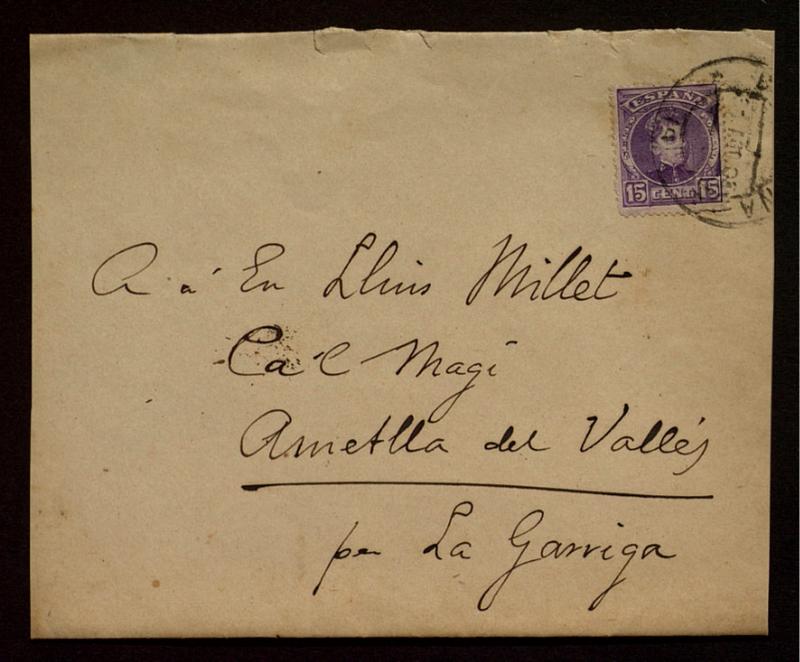 ESPAÑA
15 CENTS 15
A à En Lluis Millet
Ca'l Magí
Ametlla del Vallés
per La Garriga